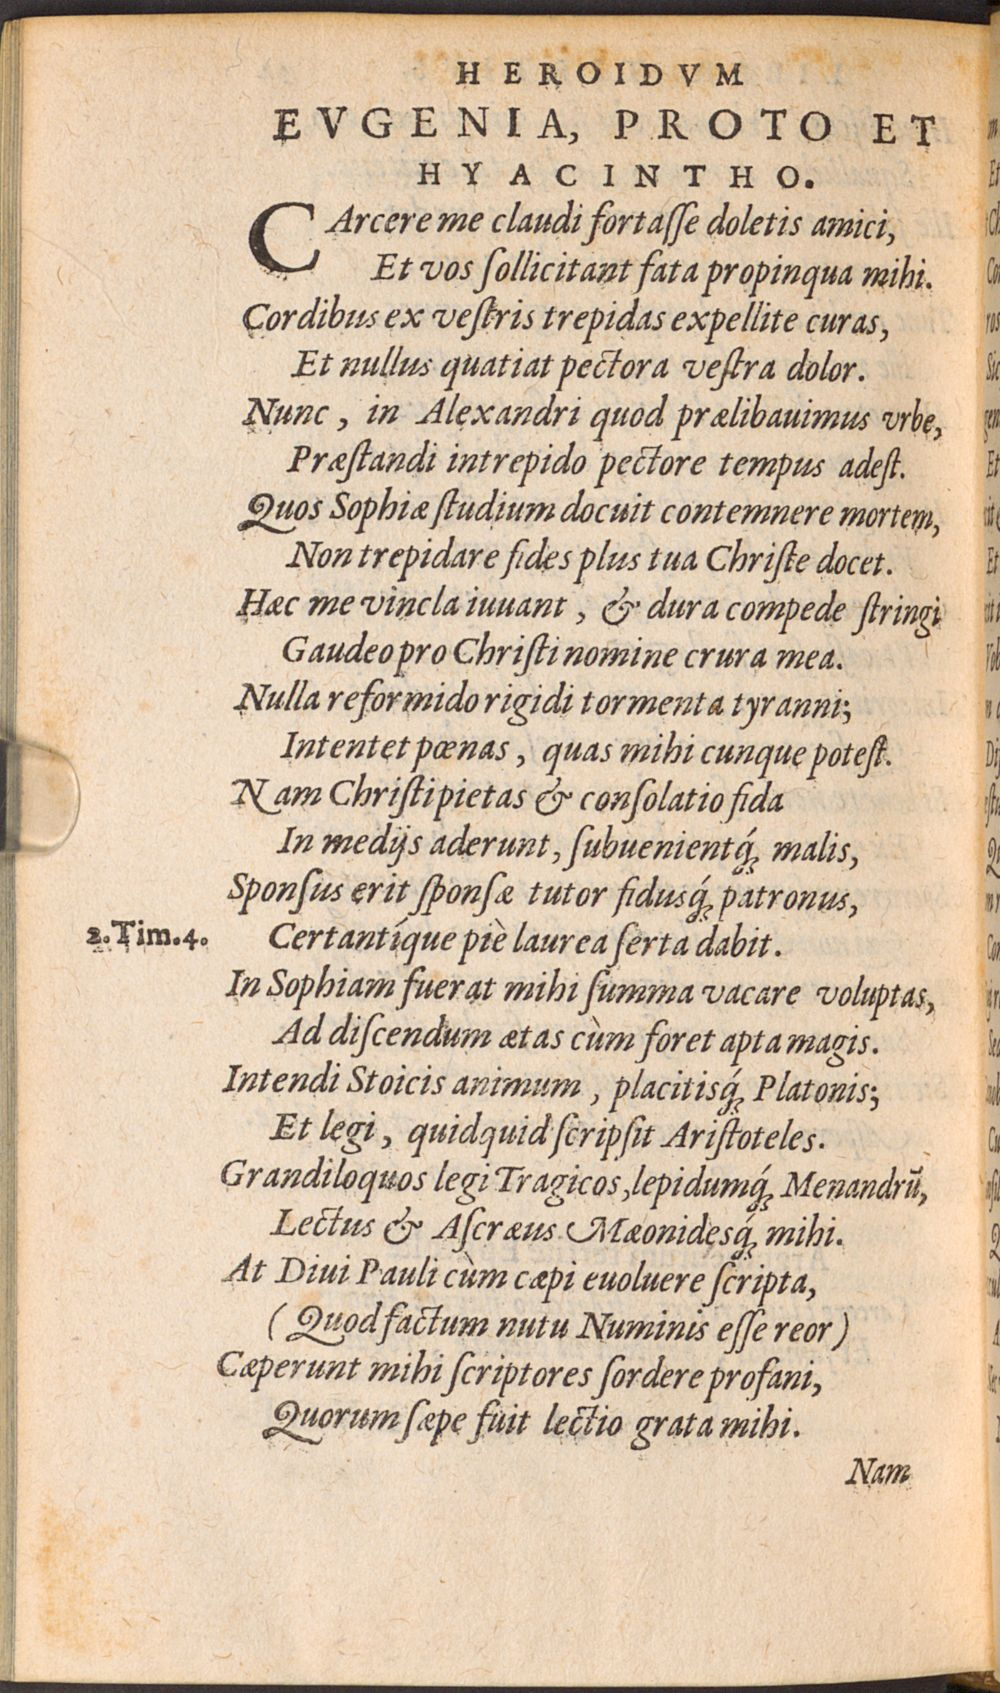 HEROIDVM
EVGENIA, PROTO ET
HYACINTHO.
CArcere me claudi fortaſſe doletis amici,
Et vos ſollicitant fata propinqua mihi.
Cordibus ex veſtris trepidas expellite curas,
Et nullus quatiat pectora veſtra dolor.
Nunc, in Alexandri quod prælibauimus vrbe,
Præſtandi intrepido pectore tempus adeſt.
Quos Sophiæ ſtudium docuit contemnere mortem,
Non trepidare fides plus tua Chriſte docet.
Hæc me vincla iuuant, & dura compede ſtringi
Gaudeo pro Chriſti nomine crura mea.
Nulla reformido rigidi tormenta tyranni;
Intentet pœnas, quas mihi cunque poteſt.
Nam Chriſti pietas & conſolatio fida
In medijs aderunt, ſubuenientq́ꝫ malis,
Sponſus erit ſponſæ tutor fidusq́ꝫ patronus,
2.Tim.4. Certantíque piè laurea ſerta dabit.
In Sophiam fuerat mihi ſumma vacare voluptas,
Ad diſcendum ætas cùm foret apta magis.
Intendi Stoicis animum, placitisq́ꝫ Platonis;
Et legi, quidquid ſcripſit Ariſtoteles.
Grandiloquos legi Tragicos, lepidumq́ꝫ Menandrū,
Lectus & Aſcræus Mæonidesq́ꝫ mihi.
At Diui Pauli cùm cæpi euoluere ſcripta,
(Quod factum nutu Numinis eſſe reor)
Cæperunt mihi ſcriptores ſordere profani,
Quorum ſæpe fuit lectio grata mihi.
Nam